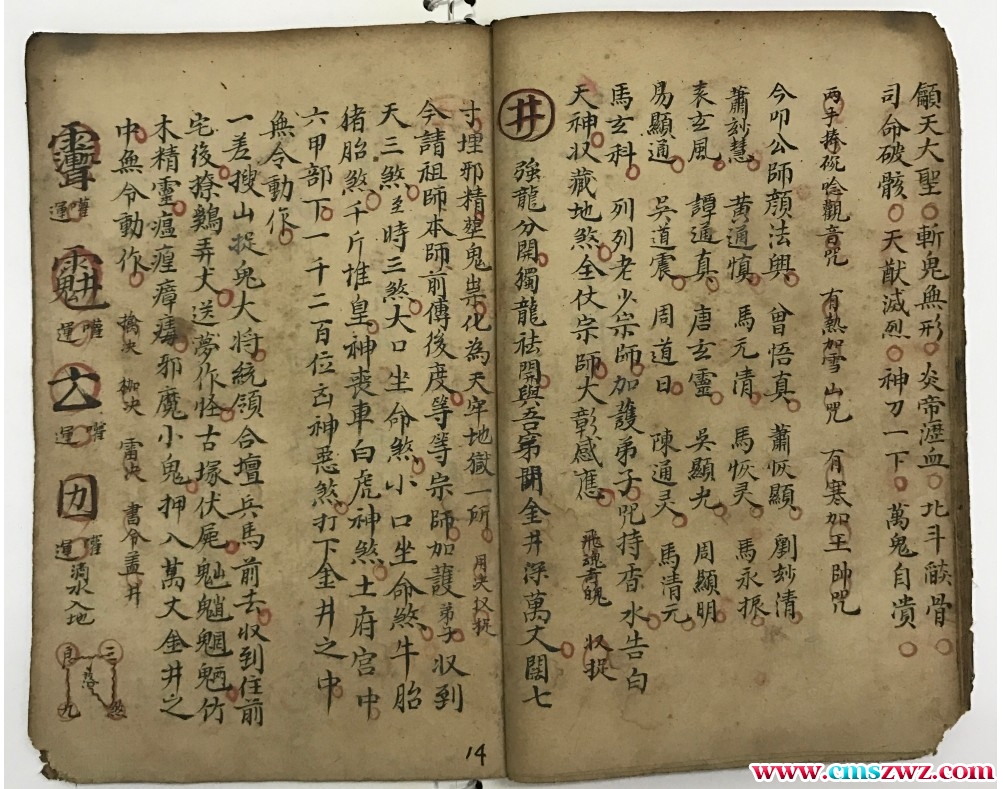 顧天大聖斬鬼無形炎帝瀝血北斗燄骨
司命破骸天猷滅烈神刀一下萬鬼自潰
兩手捧碗唸觀音咒 有熱加雪山咒 有寒加王帥咒
今叩公師顏法興 曾悟真 蕭恢顯 劉妙清
蕭妙慧 黃通慎 馬元清 馬恢灵 馬永振
袁玄風 譚通真 唐玄靈 吳顯光 周顯明
易顯通 吳道震 周道日 陳通灵 馬清元
馬玄科 列列老少宗師加護弟子咒持香水告白
天神収藏地煞全仗宗師大彰感應 収捉
井 強龍分開獨龍祛開與吾弟開金井深萬丈闊七
寸埋邪精塟鬼祟化為天牢地獄一所
今請祖師本師前傳後度等等宗師加護弟子収到
天三煞至時三煞大口坐命煞小口坐命煞牛胎
猪胎煞千斤惟皇神喪車白虎神煞土府宫中
六甲部下一千二百位凶神惡煞打下金井之中
無令動作
一差搜山捉鬼大将統領合壇兵馬前去収到住前
宅後撩鷄弄犬送夢作怪古塚伏屍魈魍魎竹
木精靈瘟瘽瘴癘邪魔小鬼押入萬丈金井之
中無令動作 擒决 枷决 雷决 書令盖井
清水入地
14
www.cmszwz.com